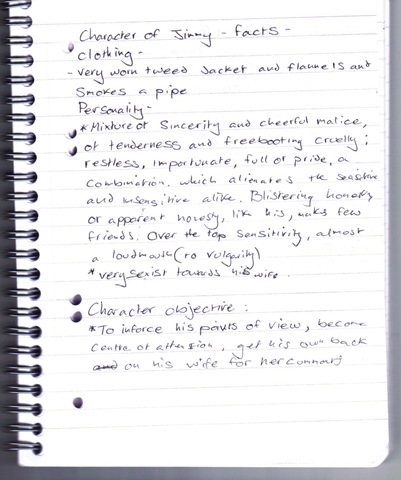 Character of Jimmy - facts -
clothing -
- very worn tweed Jacket and flannels and
Smokes a pipe
Personality -
* Mixture of Sincerity and cheerful malice,
of tenderness and freebooting cruelty ;
restless, importunate, full of pride, a
combination. which alienates the sensitive
and insensitive alike. Blistering honesty
or apparent honesty, like his, makes few
friends. Over the top sensitivity, almost
a loudmouth (to vulgarity)
* very sexist towards his wife.
Character objective :
* To inforce his points of view, become
centre of attension, get his own back
on his wife for her